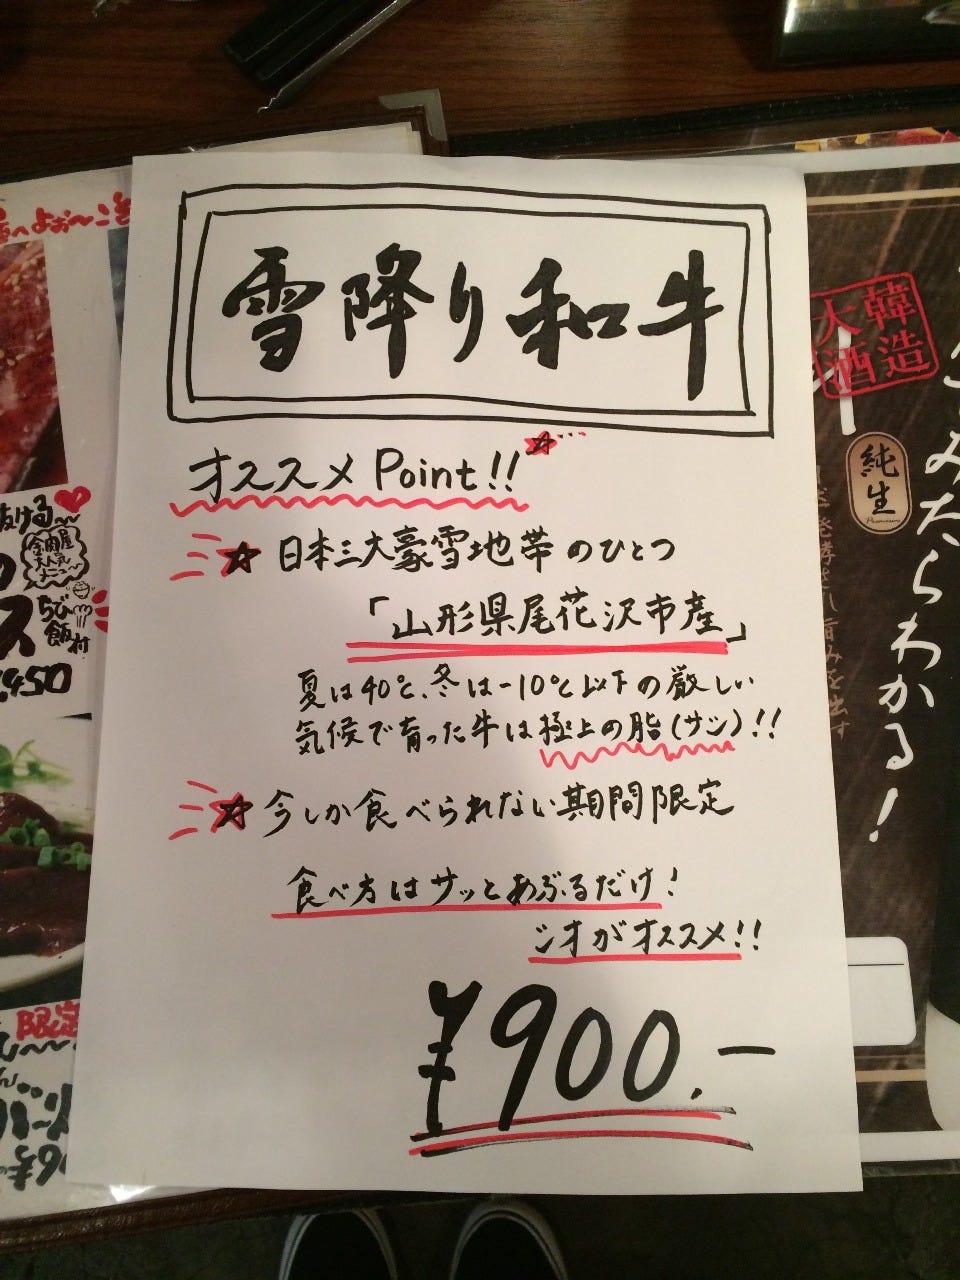 雪降り和牛
オススメ Point!!
☆ 日本三大豪雪地帯のひとつ
「山形県尾花沢市産」
夏は40℃、冬は-10℃以下の厳しい
気候で育った牛は極上の脂(サシ)!!
☆ 今しか食べられない期間限定
食べ方はサッとあぶるだけ!
シオがオススメ!!
¥900.-
抜ける〜
ちび
飯付
450
限定
韓
造
大
酒
純生
Premium
みたらわかる!